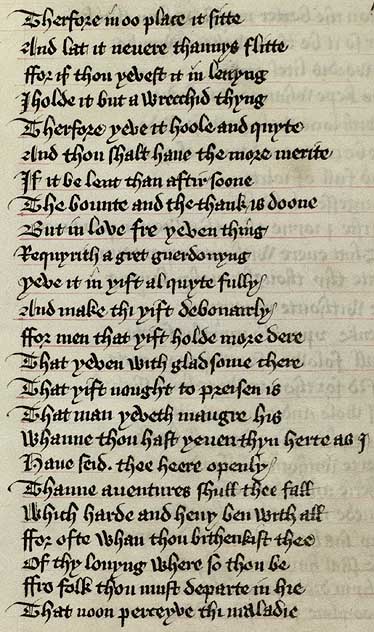 Therfore in oo place it sitte
And lat it nevere thannys flitte
ffor if thou yevest it in lenyng
I holde it but a wrecchid thyng
Therfore yeve it hoole and quyte
And thou shalt have the more merite
If it be lent than aftir soone
The bounte and the thank is doone
But in love fre yeven thing
Requyrith a gret guerdonyng
Yeve it in yift al quyte fully
And make thi yift debonairly
ffor men that yift holde more dere
That yeven with gladsome chere
That yift nought to preisen is
That man yeveth maugre his
Whanne thou hast yeuen thyn herte as I
Haue seid. thee heere openly
Thanne auentures shull thee fall
Which harde and heuy ben with all
ffor ofte whan thou bithenkist thee
Of thy louyng where so thou be
ffro folk thou must departe in hie
That noon perceyve thi maladie